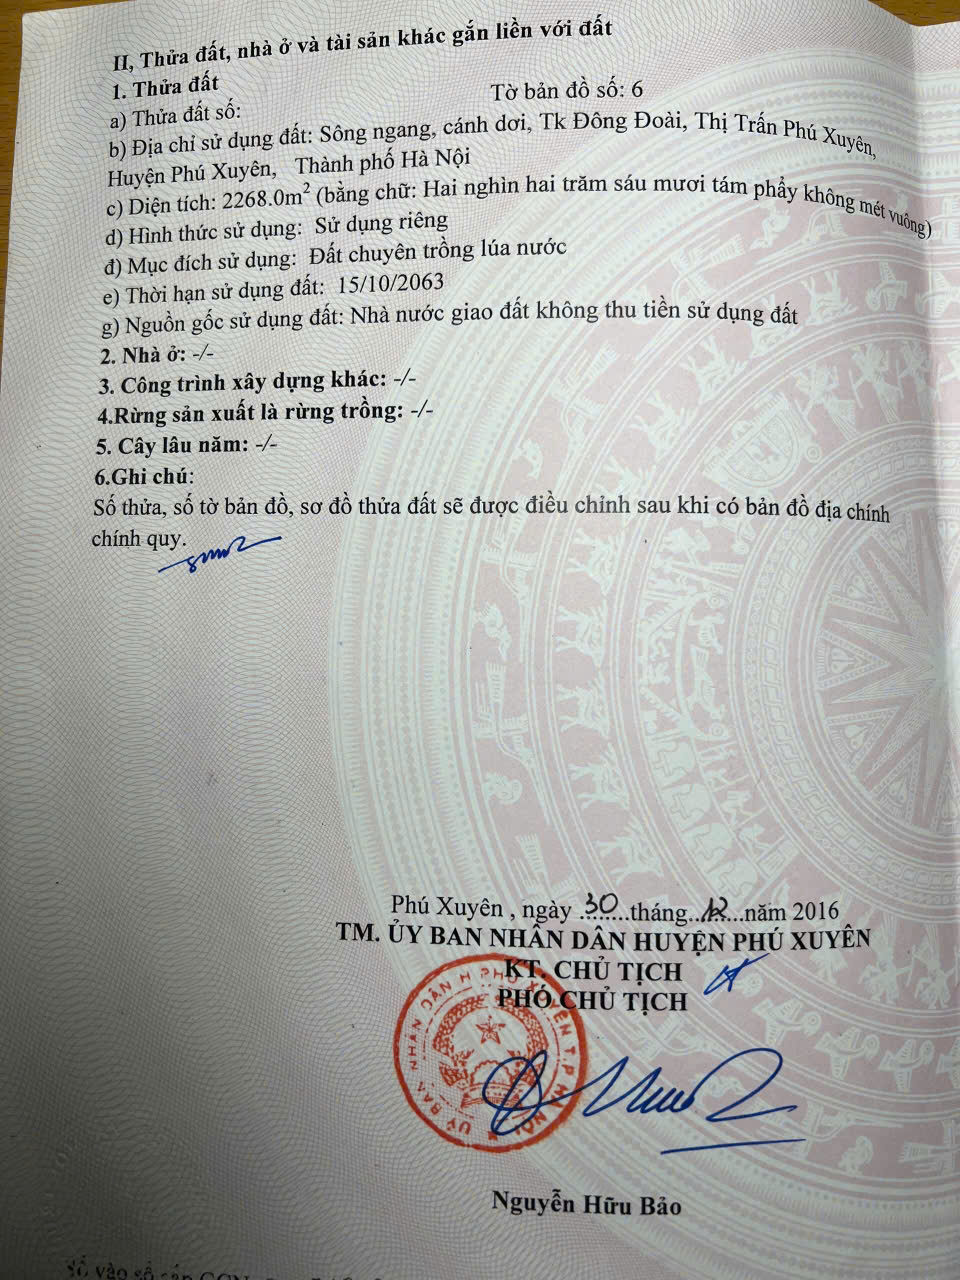 II, Thửa đất, nhà ở và tài sản khác gắn liền với đất
1. Thửa đất
a) Thửa đất số: Tờ bản đồ số: 6
b) Địa chỉ sử dụng đất: Sông ngang, cánh dơi, Tk Đông Đoài, Thị Trấn Phú Xuyên,
Huyện Phú Xuyên, Thành phố Hà Nội
c) Diện tích: 2268.0m² (bằng chữ: Hai nghìn hai trăm sáu mươi tám phẩy không mét vuông)
d) Hình thức sử dụng: Sử dụng riêng
đ) Mục đích sử dụng: Đất chuyên trồng lúa nước
e) Thời hạn sử dụng đất: 15/10/2063
g) Nguồn gốc sử dụng đất: Nhà nước giao đất không thu tiền sử dụng đất
2. Nhà ở: -/-
3. Công trình xây dựng khác: -/-
4.Rừng sản xuất là rừng trồng: -/-
5. Cây lâu năm: -/-
6.Ghi chú:
Số thửa, số tờ bản đồ, sơ đồ thửa đất sẽ được điều chỉnh sau khi có bản đồ địa chính
chính quy.
Phú Xuyên , ngày 30 tháng 12 năm 2016
TM. ỦY BAN NHÂN DÂN HUYỆN PHÚ XUYÊN
KT. CHỦ TỊCH
PHÓ CHỦ TỊCH
ỦY BAN NHÂN DÂN H PHÚ XUYÊN T.P HÀ NỘI
Nguyễn Hữu Bảo
Số vào sổ cấp GCN